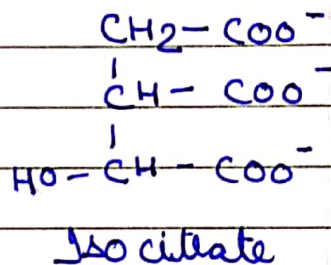 CH2-COO⁻
CH-COO⁻
HO-CH-COO⁻
Isocitrate